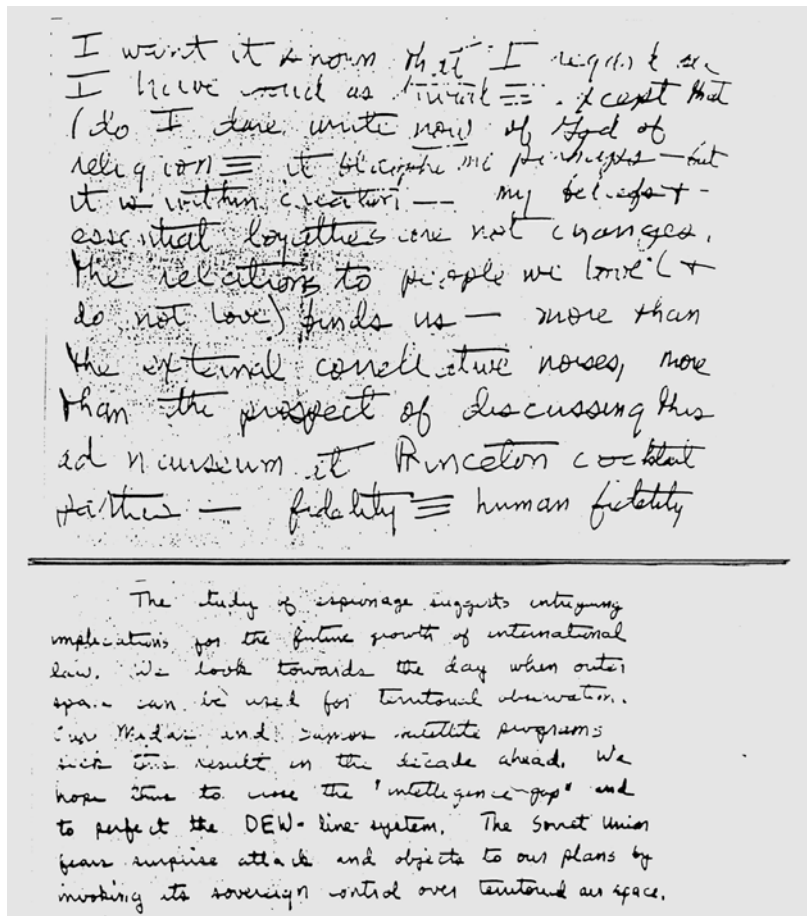 I want it known that I regard
I have said as trivial ≡ . except that
(do I dare write now of God of
religion ≡ it blaspheme my principles — but
it is within creation — my beliefs +
essential loyalties are not changes.
The relations to people we love (+
do not love) binds us — more than
the external connective noises, more
than the prospect of discussing this
ad nauseum at Princeton cocktail
parties — fidelity ≡ human fidelity
The study of espionage suggests intriguing
implications for the future growth of international
law. We look towards the day when outer
space can be used for territorial observation.
Our Midas and Samos satellite programs
seek this result in the decade ahead. We
hope thus to close the "intelligence-gap" and
to perfect the DEW-line-system. The Soviet Union
fears surprise attack and objects to our plans by
invoking its sovereign control over territorial air space.